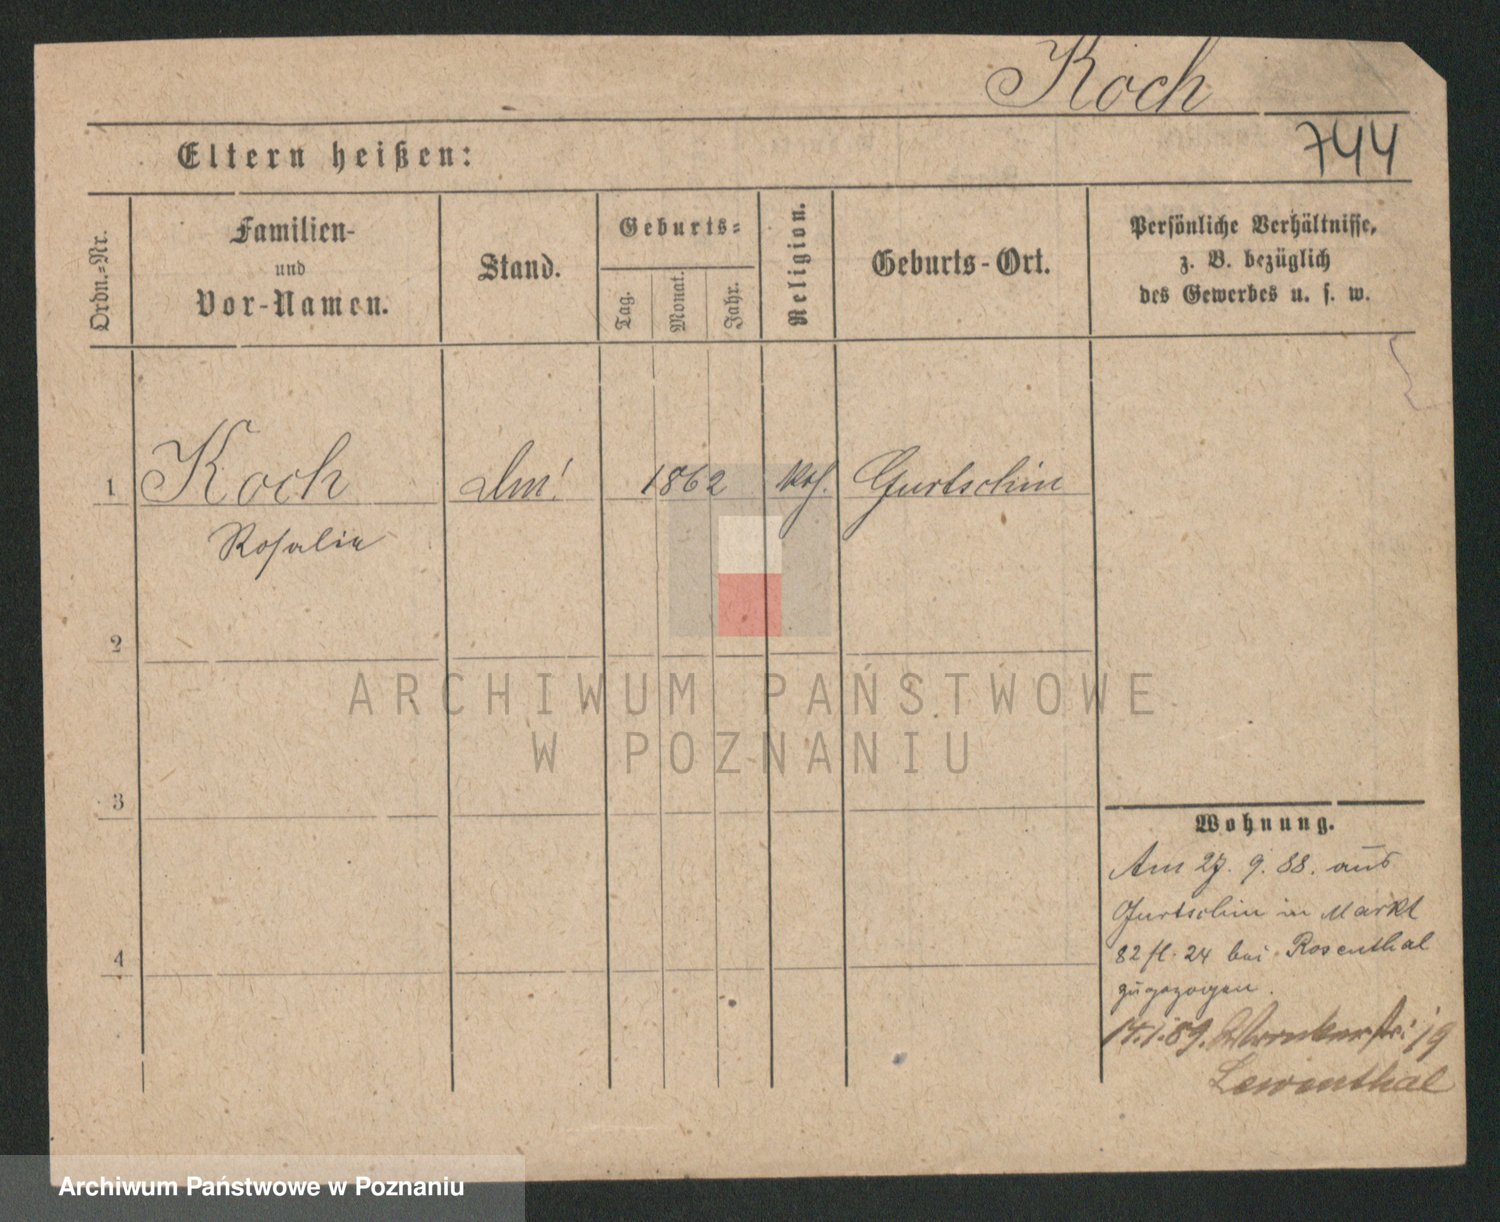 Koch
744
Eltern heißen:
Ordn.-Nr.
Familien-
und
Vor-Namen.
Stand.
Geburts-
Tag.
Monat.
Jahr.
Religion.
Geburts-Ort.
Persönliche Verhältnisse,
z. B. bezüglich
des Gewerbes u. s. w.
1 Koch 1862 Gurtschin
Rosalie
2
3
4
Wohnung.
Am 27. 9. 88. aus
Gurtschin in Markt
82 fl. 24 bei Rosenthal
zugezogen.
14.1.89. 19
Lewinthal
ARCHIWUM PAŃSTWOWE
W POZNANIU
Archiwum Państwowe w Poznaniu